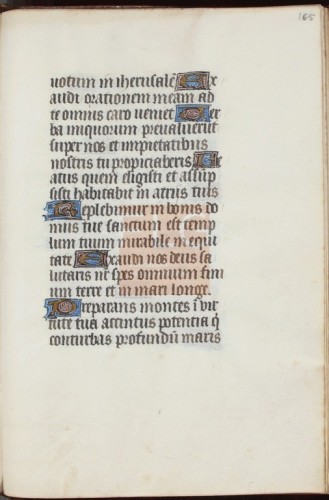 165
uotum in iherusalē Ex
audi orationem meam ad
te omnis caro veniet Ver
ba iniquorum preualuerūt
super nos et impietatibus
nostris tu propiciaberis Be
atus quem elegisti et assūp
sisti habitabit in atriis tuis
Replebimur in bonis do
mus tue sanctum est temp
lum tuum mirabile in equi
tate Exaudi nos deus sa
lutaris nr̄ spes omnium fini
um terre et in mari longe.
Preparans montes ī vir
tute tua accinctus potentia q̄
conturbas profundū maris